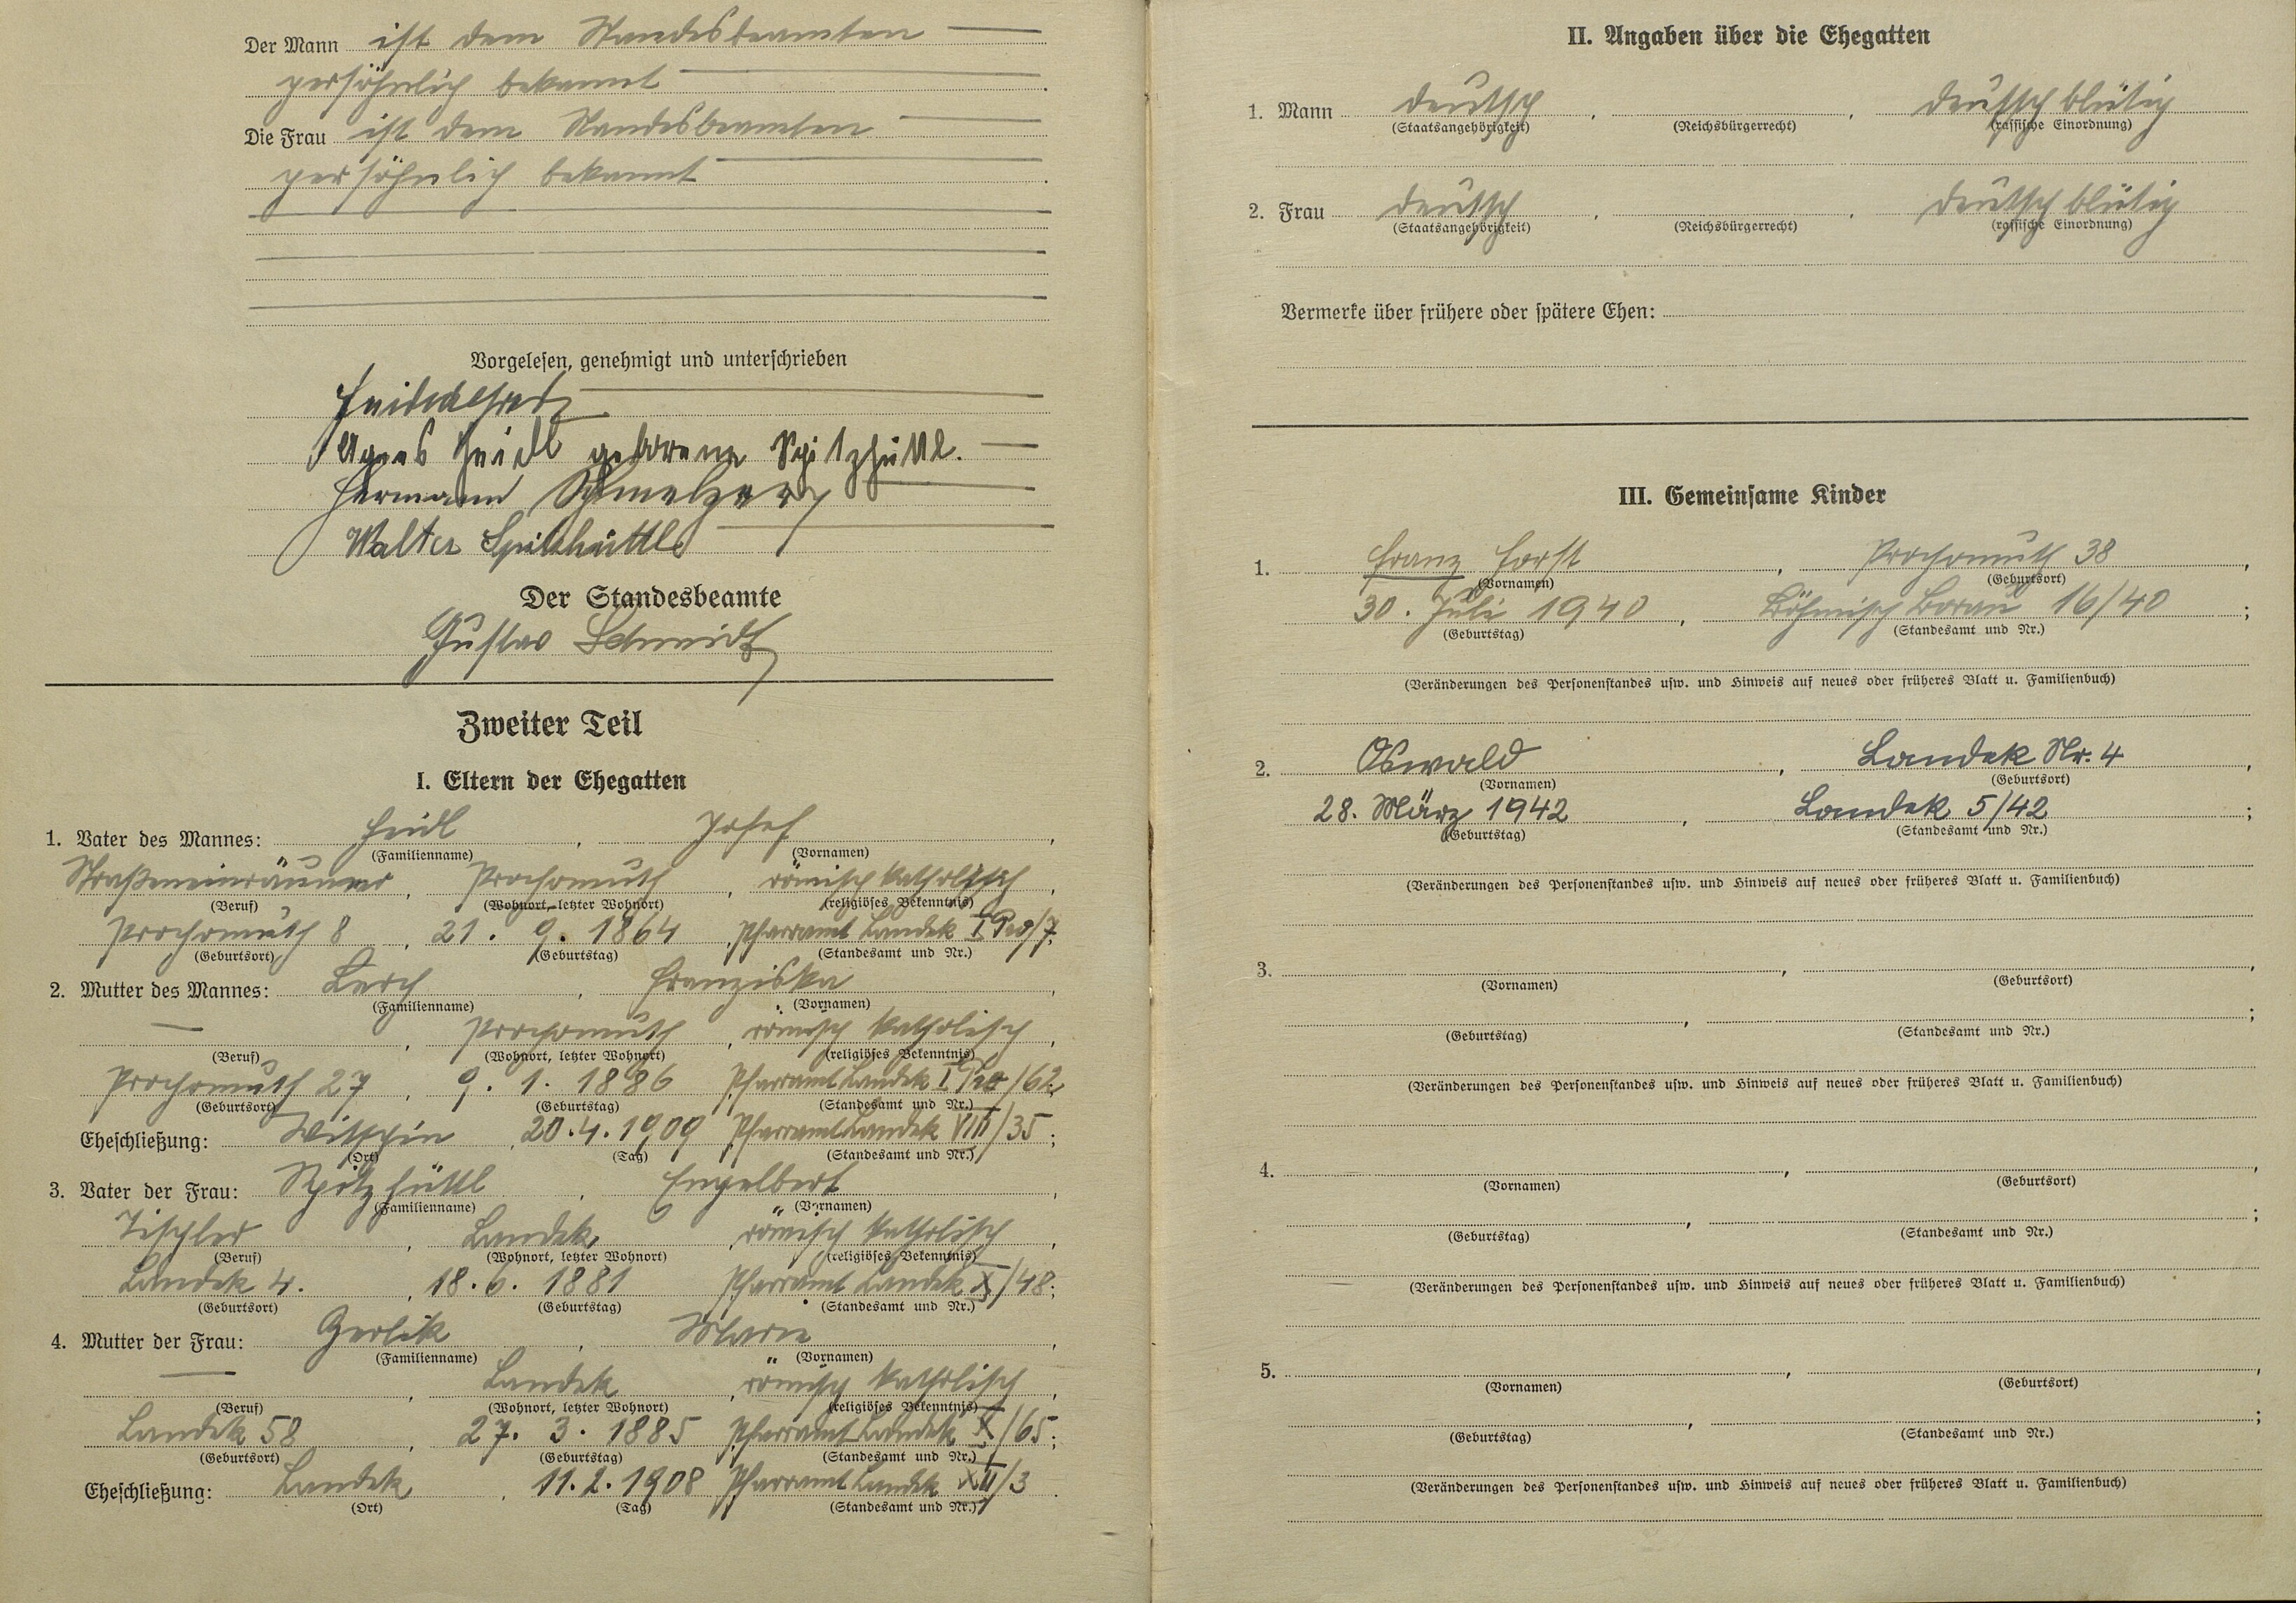 Der Mann ist dem Standesbeamten
persöhnlich bekannt
Die Frau ist dem Standesbeamten
persöhnlich bekannt
Vorgelesen, genehmigt und unterschrieben
Agnes Heidl geborene Spitzhüttl.
Hermann Schmelzer
Walter Spitzhüttl
Der Standesbeamte
Gustav Schmidt
Zweiter Teil
I. Eltern der Ehegatten
1. Vater des Mannes: Heidl, Josef,
(Familienname) (Vornamen)
Straßeneinräumer, Prochomuth, römisch katholisch,
(Beruf) (Wohnort, letzter Wohnort) (religiöses Bekenntnis)
Prochomuth 8, 21. 9. 1864, Pfarramt Landek
(Geburtsort) (Geburtstag) (Standesamt und Nr.)
2. Mutter des Mannes: Lerch, Franziska,
(Familienname) (Vornamen)
—, Prochomuth, römisch katholisch,
(Beruf) (Wohnort, letzter Wohnort) (religiöses Bekenntnis)
Prochomuth 27, 9. 1. 1886, Pfarramt Landek /62,
(Geburtsort) (Geburtstag) (Standesamt und Nr.)
Eheschließung: Witschin, 20. 4. 1909 Pfarramt Landek VIII/35;
(Ort) (Tag) (Standesamt und Nr.)
3. Vater der Frau: Spitzhüttl, Engelbert,
(Familienname) (Vornamen)
Tischler, Landek, römisch katholisch,
(Beruf) (Wohnort, letzter Wohnort) (religiöses Bekenntnis)
Landek 4., 18. 6. 1881 Pfarramt Landek X/48;
(Geburtsort) (Geburtstag) (Standesamt und Nr.)
4. Mutter der Frau: Gerlik, Marie,
(Familienname) (Vornamen)
—, Landek, römisch katholisch,
(Beruf) (Wohnort, letzter Wohnort) (religiöses Bekenntnis)
Landek 58, 27. 3. 1885 Pfarramt Landek X/65;
(Geburtsort) (Geburtstag) (Standesamt und Nr.)
Eheschließung: Landek, 11. 2. 1908 Pfarramt Landek XII/3.
(Ort) (Tag) (Standesamt und Nr.)
II. Angaben über die Ehegatten
1. Mann deutsch, , deutschblütig
(Staatsangehörigkeit) (Reichsbürgerrecht) (rassische Einordnung)
2. Frau deutsch, , deutschblütig
(Staatsangehörigkeit) (Reichsbürgerrecht) (rassische Einordnung)
Vermerke über frühere oder spätere Ehen:
III. Gemeinsame Kinder
1. Franz Horst, Prochomuth 38,
(Vornamen) (Geburtsort)
30. Juli 1940, Böhmisch Borau 16/40;
(Geburtstag) (Standesamt und Nr.)
(Veränderungen des Personenstandes usw. und Hinweis auf neues oder früheres Blatt u. Familienbuch)
2. Oswald, Landek Nr. 4,
(Vornamen) (Geburtsort)
28. März 1942, Landek 5/42;
(Geburtstag) (Standesamt und Nr.)
(Veränderungen des Personenstandes usw. und Hinweis auf neues oder früheres Blatt u. Familienbuch)
3. , ,
(Vornamen) (Geburtsort)
, ;
(Geburtstag) (Standesamt und Nr.)
(Veränderungen des Personenstandes usw. und Hinweis auf neues oder früheres Blatt u. Familienbuch)
4. , ,
(Vornamen) (Geburtsort)
, ;
(Geburtstag) (Standesamt und Nr.)
(Veränderungen des Personenstandes usw. und Hinweis auf neues oder früheres Blatt u. Familienbuch)
5. , ,
(Vornamen) (Geburtsort)
, ;
(Geburtstag) (Standesamt und Nr.)
(Veränderungen des Personenstandes usw. und Hinweis auf neues oder früheres Blatt u. Familienbuch)